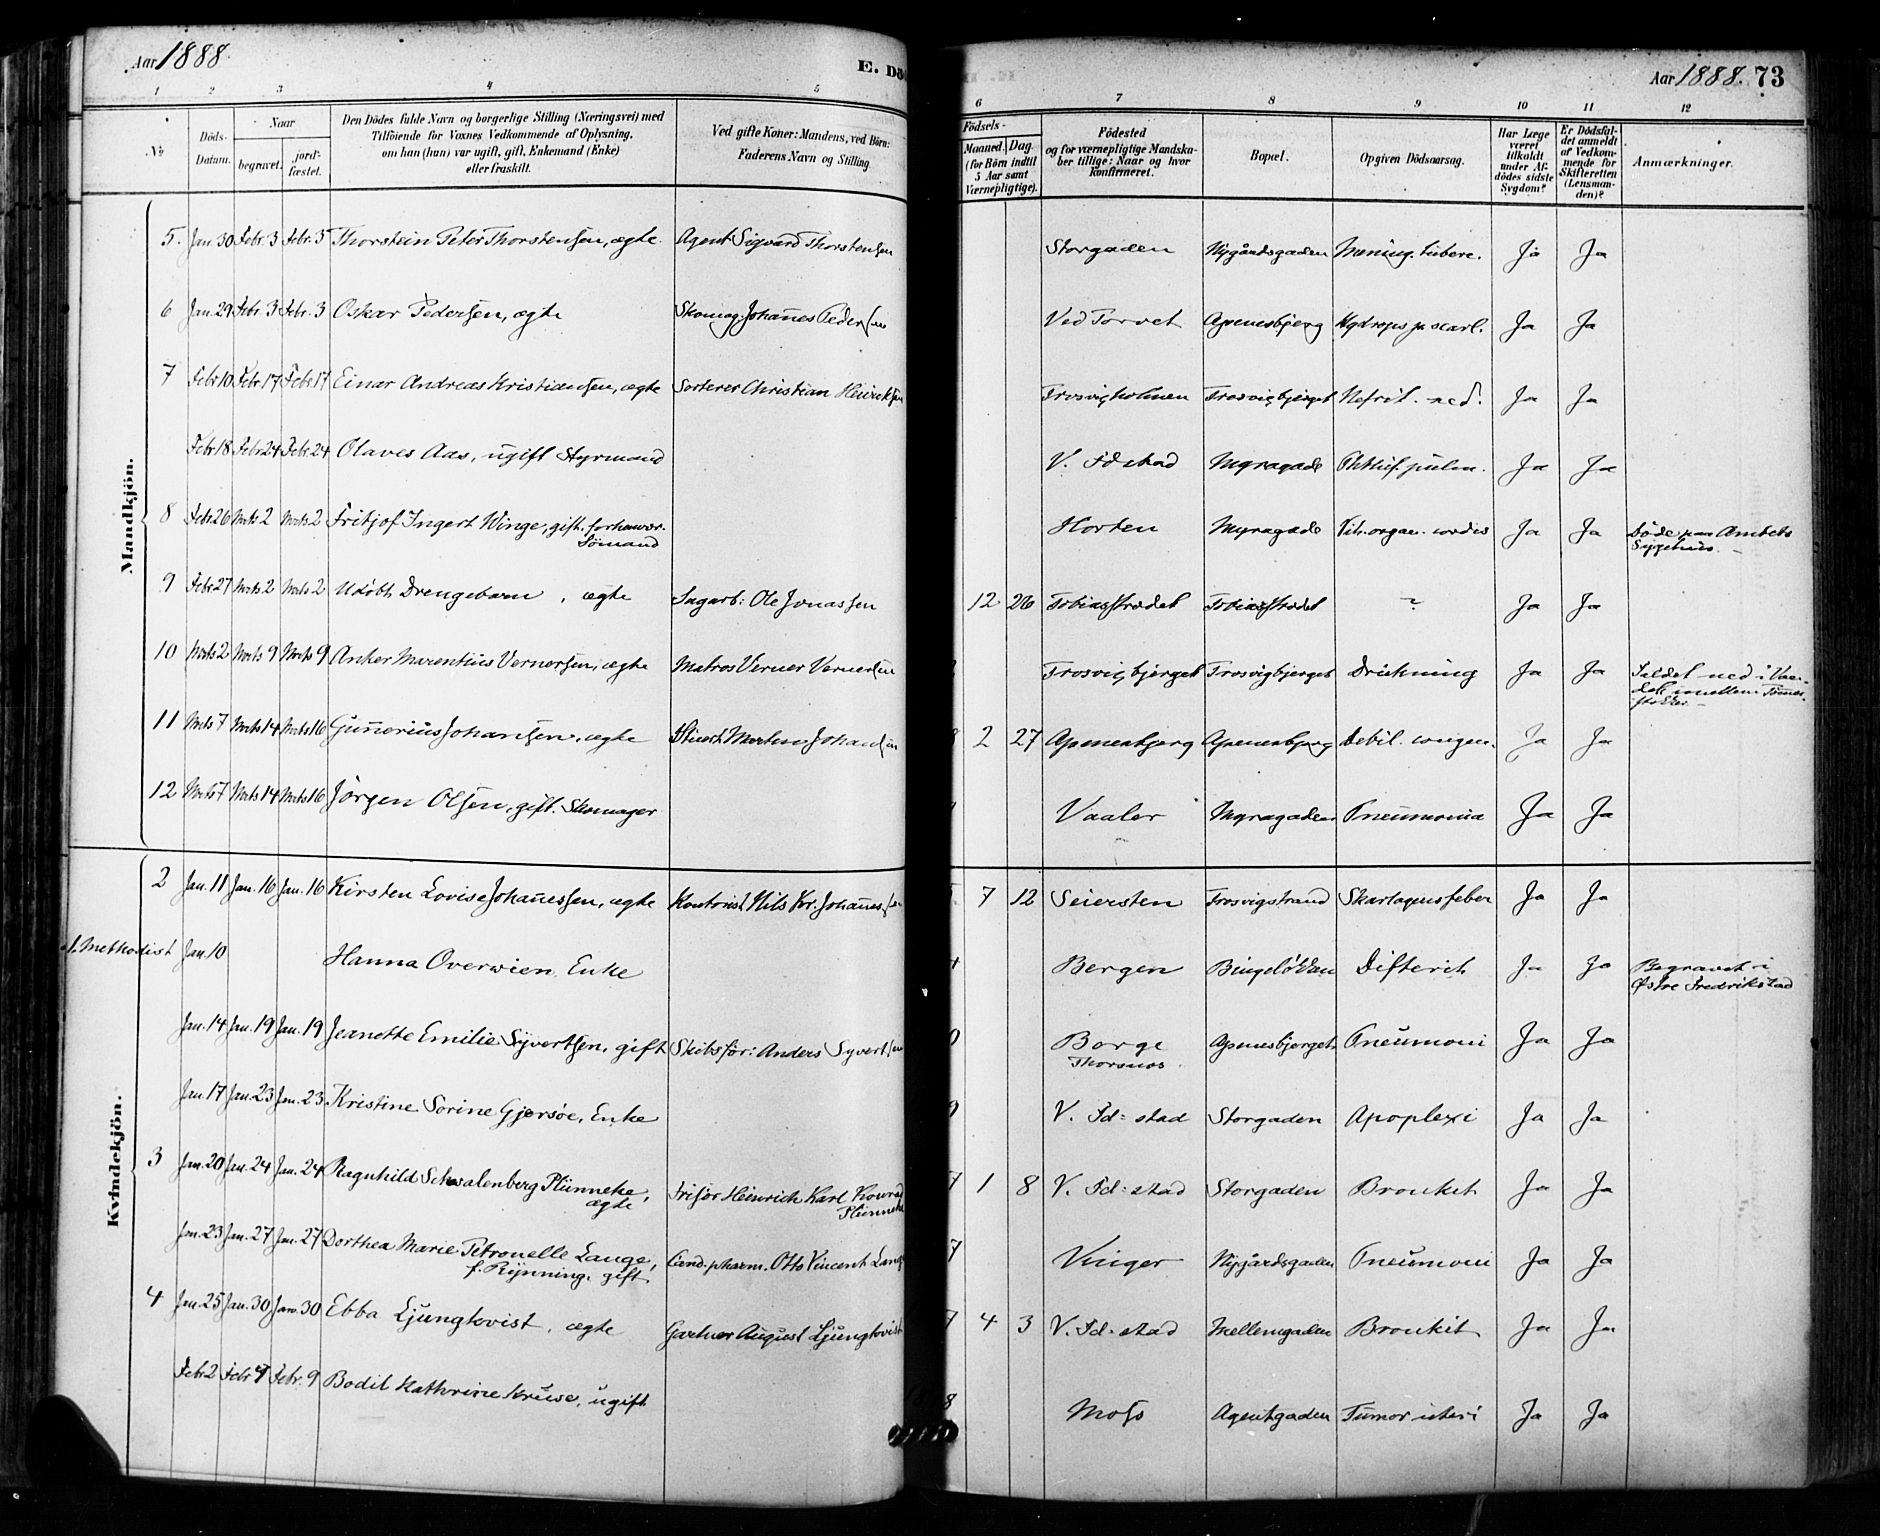 Aar 1888.
E. Dö
1 2 3 4 5
No
Döds-Datum.
Naar
begravet.
jord-fæstet.
Den Dödes fulde Navn og borgerlige Stilling (Næringsvei) med
Tilföiende for Voxnes Vedkommende af Oplysning,
om han (hun) var ugift, gift, Enkemand (Enke)
eller fraskilt.
Ved gifte Koner: Mandens, ved Börn:
Faderens Navn og Stilling.
Mandkjön.
5. Jan. 30 Febr. 3 Febr. 3 Thorstein Peter Thorstensen, ægte. Agent Sigvard Thorstensen
6 Jan. 29 Febr. 3 Febr. 3 Oskar Pedersen, ægte Skomag. Johañes Pedersen
7 Febr 10 Febr 17 Febr 17 Einar Andreas Kristiansen, ægte Sorterer Christian Heinriksen
Febr 18 Febr 24 Febr 24 Olaves Aas, ugift Styrmand
8 Febr 26 Mrts 2 Mrts 2 Fritjof Ingert Winge, gift. forhenvær.
Sömand
9 Febr. 27 Mrts 2 Mrts 2 Udöbt Drengebarn, ægte Sagarb: Ole Jonassen
10 Mrts 2 Mrts 9 Mrts 9 Anker Marentius Vernersen, ægte Matros Verner Vernersen
11 Mrts 7 Mrts 14 Mrts 16 Guñerius Johansen, ægte Stuert Morten Johansen
12 Mrts 7 Mrts 14 Mrts 16 Jörgen Olsen, gift. Skomager
Kvindekjön.
2 Jan. 11 Jan. 16 Jan. 16 Kirsten Lovise Johañessen, ægte Kontorist Nils Kr. Johañessen
1. Methodist Jan. 10 Hanna Overwien, Enke
Jan. 14 Jan. 19 Jan. 19 Jeanette Emilie Syvertsen, gift Skibsför: Anders Syvertsen
Jan. 17 Jan. 23 Jan. 23 Kristine Sorine Gjersöe, Enke
3 Jan. 20 Jan. 24 Jan. 24 Ragnhild Schwalenberg Plünneke,
ægte Frisör Heinrich Karl Konrad
Plünneke
Jan. 23 Jan. 27 Jan. 27 Dorthea Marie Petronelle Lange,
f. Rynning. gift Cand. pharm. Otto Vincent Lange
4 Jan. 25 Jan. 30 Jan. 30 Ebba Ljungkvist, ægte Gartner August Ljungkvist
Febr. 2 Febr 9 Febr. 9 Bodil Kathrine Kruse, ugift
Aar 1888. 73
6 7 8 9 10 11 12
Födsels-
Maaned. Dag.
(for Börn indtil
5 Aar samt
Værnepligtige).
Födested
og for værnepligtige Mandska-
ber tillige: Naar og hvor
Konfirmeret.
Bopæl.
Opgiven Dödsaarsag.
Har Læge
været
tilkaldt
under Af-
dödes sidste
Sygdom?
Er Dödsfal-
det anmeldt
af Vedkom-
mende for
Skifteretten
(Lensman-
den)?
Anmærkninger.
Storgaden Nygårdsgaden Mening. tuberc. Ja Ja
Ved Torvet Apenesbjerg Hydrops p. scarl. Ja Ja
Trosvigholmen Trosvigbjerget Nefrit. Ja Ja
V. Fdstad Myragade pulm. Ja Ja
Horten Myragade Vit. organ. cordis Ja Ja Döde paa Amtets
Sygehus.
12 26 Tobiasstrædet Tobiasstrædet ? Ja Ja
Trosvigbjerget Trosvigbjerget Drukning Ja Ja Faldet ned i Van-
det mellem Tömmer-
stokker.
2 27 Apenesbjerg Apenesbjerg Debil. congen. Ja Ja
Vaaler Myragaden Pneumonia Ja Ja
7 12 Seiersten Trosvigstrand Skarlagensfeber Ja Ja
Bergen Bingelökken Difterit Ja Ja Begravet i
Østre Fredrikstad
Borge
Thorsnæs. Apenesbjerget Pneumoni Ja Ja
V. Fd:stad Storgaden Apoplexi Ja Ja
7 1 8 V. Fd:stad Storgaden Bronkit Ja Ja
7 Vinger Nygårdsgaden Pneumoni Ja Ja
7 4 3 V. Fd:stad Mellemgaden Bronkit Ja Ja
8 Moss Agentgaden Tumor uteri Ja Ja